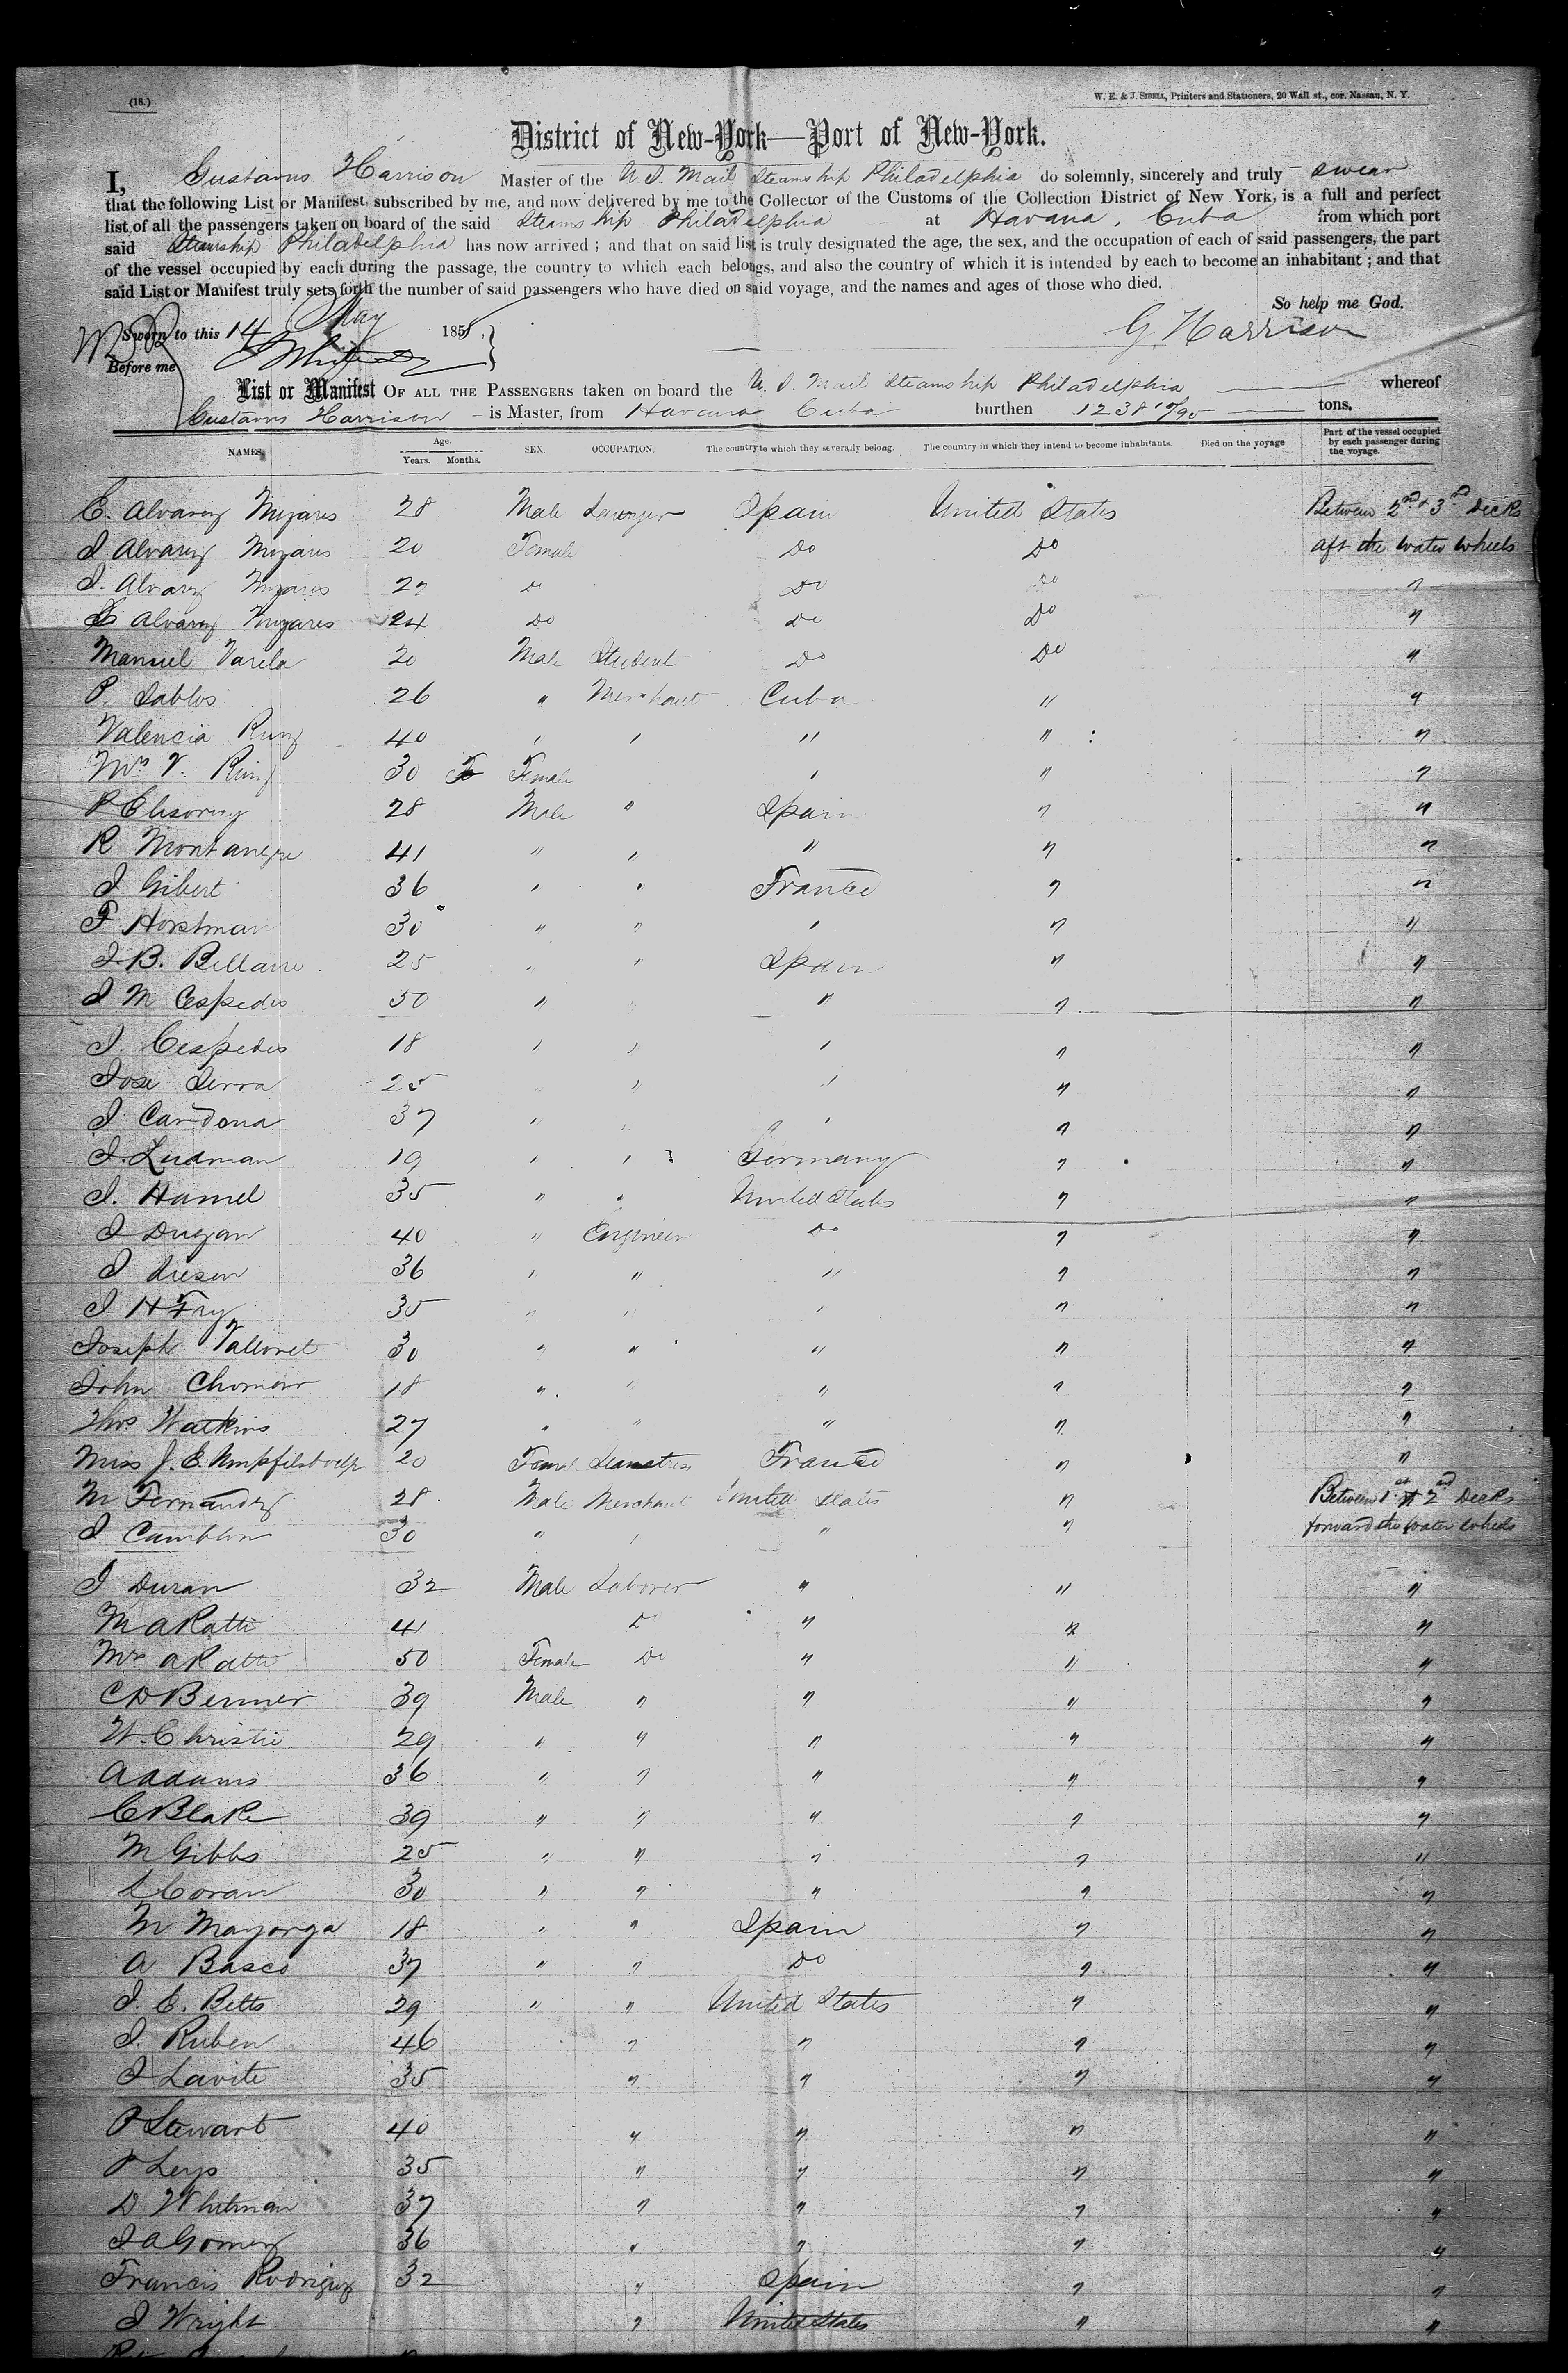 (18.)
W. E. & J. SIBELL, Printers and Stationers, 20 Wall st., cor. Nassau, N. Y.
District of New-York—Port of New-York.
I, Gustavus Harrison Master of the U. S. Mail Steam ship Philadelphia do solemnly, sincerely and truly swear
that the following List or Manifest, subscribed by me, and now delivered by me to the Collector of the Customs of the Collection District of New York, is a full and perfect
list of all the passengers taken on board of the said Steam ship Philadelphia at Havana, Cuba from which port
said Steamship Philadelphia has now arrived ; and that on said list is truly designated the age, the sex, and the occupation of each of said passengers, the part
of the vessel occupied by each during the passage, the country to which each belongs, and also the country of which it is intended by each to become an inhabitant ; and that
said List or Manifest truly sets forth the number of said passengers who have died on said voyage, and the names and ages of those who died.
So help me God.
Sworn to this 14 May 185
G. Harrison
Before me
List or Manifest OF ALL THE PASSENGERS taken on board the U. S. Mail Steam ship Philadelphia whereof
Gustavus Harrison is Master, from Havana Cuba burthen 1238 10/95 tons.
NAMES. Age. Years. Months. SEX. OCCUPATION. The country to which they severally belong. The country in which they intend to become inhabitants. Died on the voyage Part of the vessel occupied by each passenger during the voyage.
E. Alvarez Mijares 28 Male Lawyer Spain United States Between 2nd & 3rd Decks
J Alvarez Mijares 20 Female Do Do aft the water wheels
J. Alvarez Mijares 22 Do Do Do "
Alvarez Mijares 24 Do Do Do "
Manuel Varela 20 Male Student Do Do "
P. Sablos 26 " Merchant Cuba " "
Valencia Ruiz 40 " " " " "
Mrs V. Ruiz 30 Female " " "
P 28 Male " Spain " "
R 41 " " " " "
J Gibert 36 " " France " "
F Horstman 30 " " " " "
J. B. Bellaire 25 " " Spain " "
J M Cespedes 50 " " " "
J. Cespedes 18 " " " " "
Jose Serra 25 " " " "
J. Cardona 37 " " " "
J. Ludman 19 " " Germany " "
J. Hamel 35 " " United States " "
J Dugan 40 " Engineer Do " "
J 36 " " " " "
J H Fry 35 " " " " "
Joseph 30 " " " " "
John 18 " " " " "
Thos Watkins 27 " " " " "
Miss J. E. 20 Female Seamstress France " "
M Fernandez 28 Male Merchant United States " Between 1st & 2nd Decks
J 30 " " " " forward the water wheels
J Duran 32 Male Laborer " " "
M A Ratti 41 Do " " "
Mrs A Ratti 50 Female Do " " "
C D 39 Male " " " "
W. Christie 29 " " " " "
A Adams 36 " " " " "
C Blake 39 " " " " "
M Gibbs 25 " " " " "
Coran 30 " " " " "
M Mayorga 18 " " Spain " "
A Basco 37 " " Do " "
J. E. Betts 29 " " United States " "
J. Ruben 46 " " " "
J Lavite 35 " " " "
P Stewart 40 " " " "
P Leys 35 " " " "
D Whitman 37 " " " "
J A Gomez 36 " " " "
Francis Rodriguez 32 " Spain " "
J Wright " United States " "